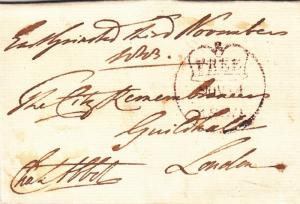 East Grinstead third November
FREE
The City Remembrancer
Guildhall
London
Chas Abbot